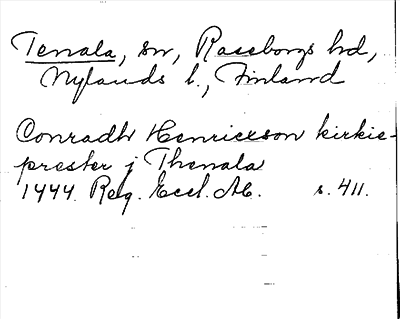 Tenala, sn, Raseborgs hd,
Nylands l., Finland
Conradh Henricxson kirkie-
prester j Thenala
1444. Reg. Eccl. Ab. s. 411.